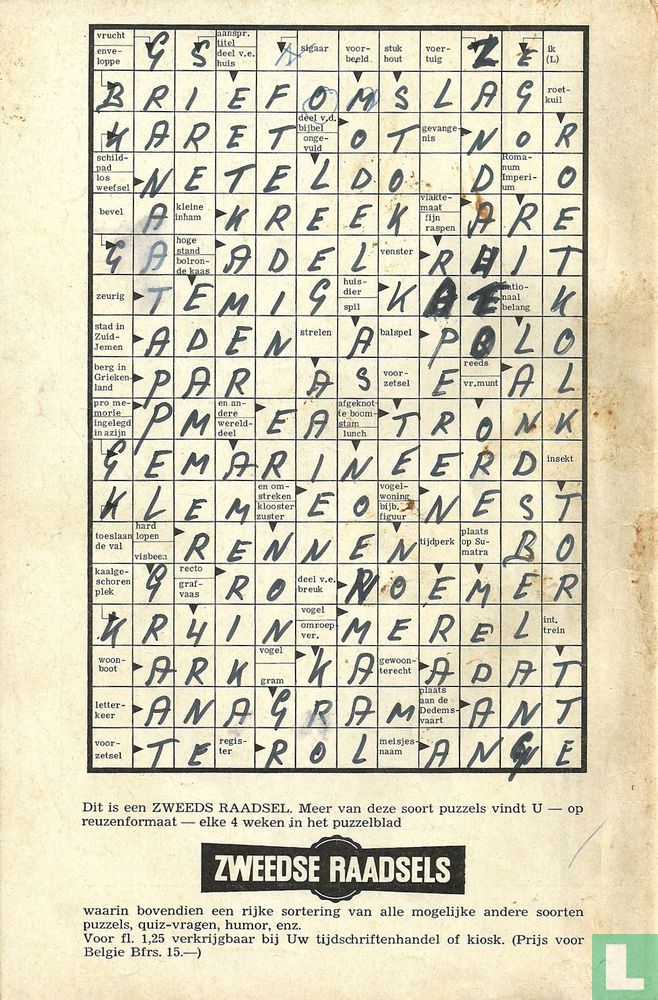 vrucht enve- loppe G S aanspr. titel deel v.e. huis sigaar voor- beeld stuk hout voer- tuig Z E ik (L)
B R I E F O M S L A G roet- kuil
K A R E T deel v.d. bijbel onge- vuld O T gevange- nis N O R
schild- pad los weefsel N E T E L D O D Roma- num Imperi- um O
bevel A kleine inham K R E E K vlakte- maat fijn raspen A R E
G A hoge stand bolron- de kaas A D E L venster R U I T
zeurig T E M I G huis- dier spil K A T natio- naal belang K
stad in Zuid- Jemen A D E N strelen A balspel P O L O
berg in Grieken- land P A R A S voor- zetsel E reeds vr.munt A L
pro me- morie ingelegd in azijn P M en an- dere wereld- deel E A afgeknot- te boom- stam lunch T R O N K
G E M A R I N E E R D insekt
K L E M en om- streken klooster zuster E O vogel- woning bijb. figuur N E S T
toeslaan de val hard lopen visbeen R E N N E N tijdperk plaats op Su- matra B O
kaalge- schoren plek G recto graf- vaas R O deel v.e. breuk N O E M E R
K R U I N vogel omroep ver. M E R E L int. trein
woon- boot A R K vogel gram K A gewoon- terecht A D A T
letter- keer A N A G R A M plaats aan de Dedems- vaart A N T
voor- zetsel T E regis- ter R O L meisjes- naam A N G E
Dit is een ZWEEDS RAADSEL. Meer van deze soort puzzels vindt U — op
reuzenformaat — elke 4 weken in het puzzelblad
ZWEEDSE RAADSELS
waarin bovendien een rijke sortering van alle mogelijke andere soorten
puzzels, quiz-vragen, humor, enz.
Voor fl. 1,25 verkrijgbaar bij Uw tijdschriftenhandel of kiosk. (Prijs voor
Belgie Bfrs. 15.—)
L